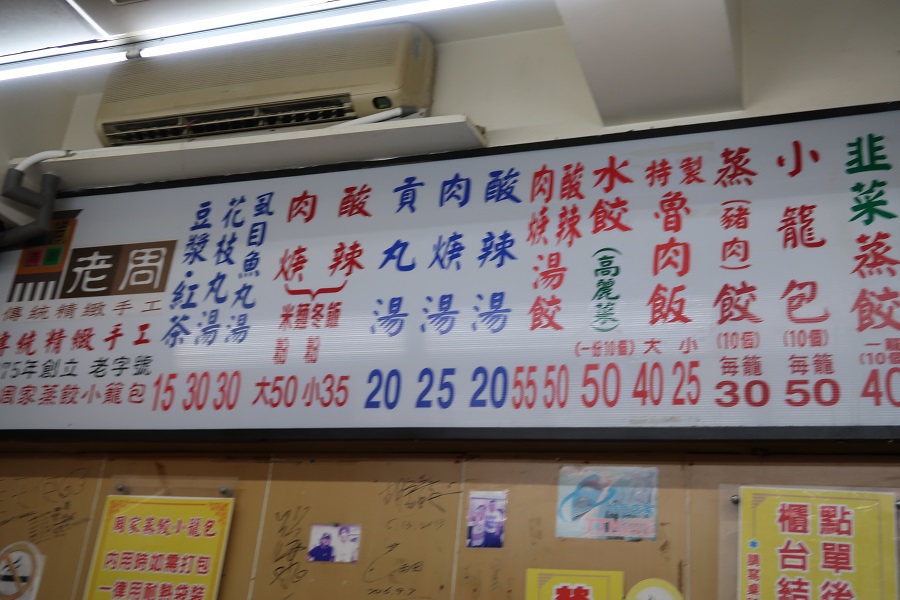 韭菜蒸餃
一籠
(10個)
40
小龍包
(10個)
每籠
50
蒸餃
(豬肉)
(10個)
每籠
30
特製
魯肉飯
大 小
40 25
水餃
(高麗菜)
(一份10個)
50
酸辣湯餃
50
肉焿湯餃
55
酸辣湯
20
肉焿湯
25
貢丸湯
20
酸辣
肉焿
米粉
麵
冬粉
飯
大50 小35
虱目魚丸湯
30
花枝丸湯
30
豆漿·紅茶
15
老周
傳統精緻手工
傳統精緻手工
75年創立 老字號
周家蒸餃小籠包
周家蒸餃小籠包
內用時如需打包
一律用耐熱袋裝
點單後
櫃台結